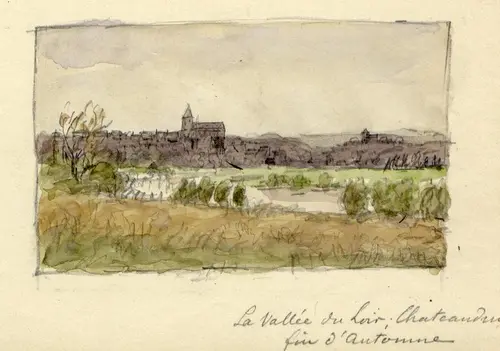 La Vallée du Loir, Chateaudun
fin d'Automne